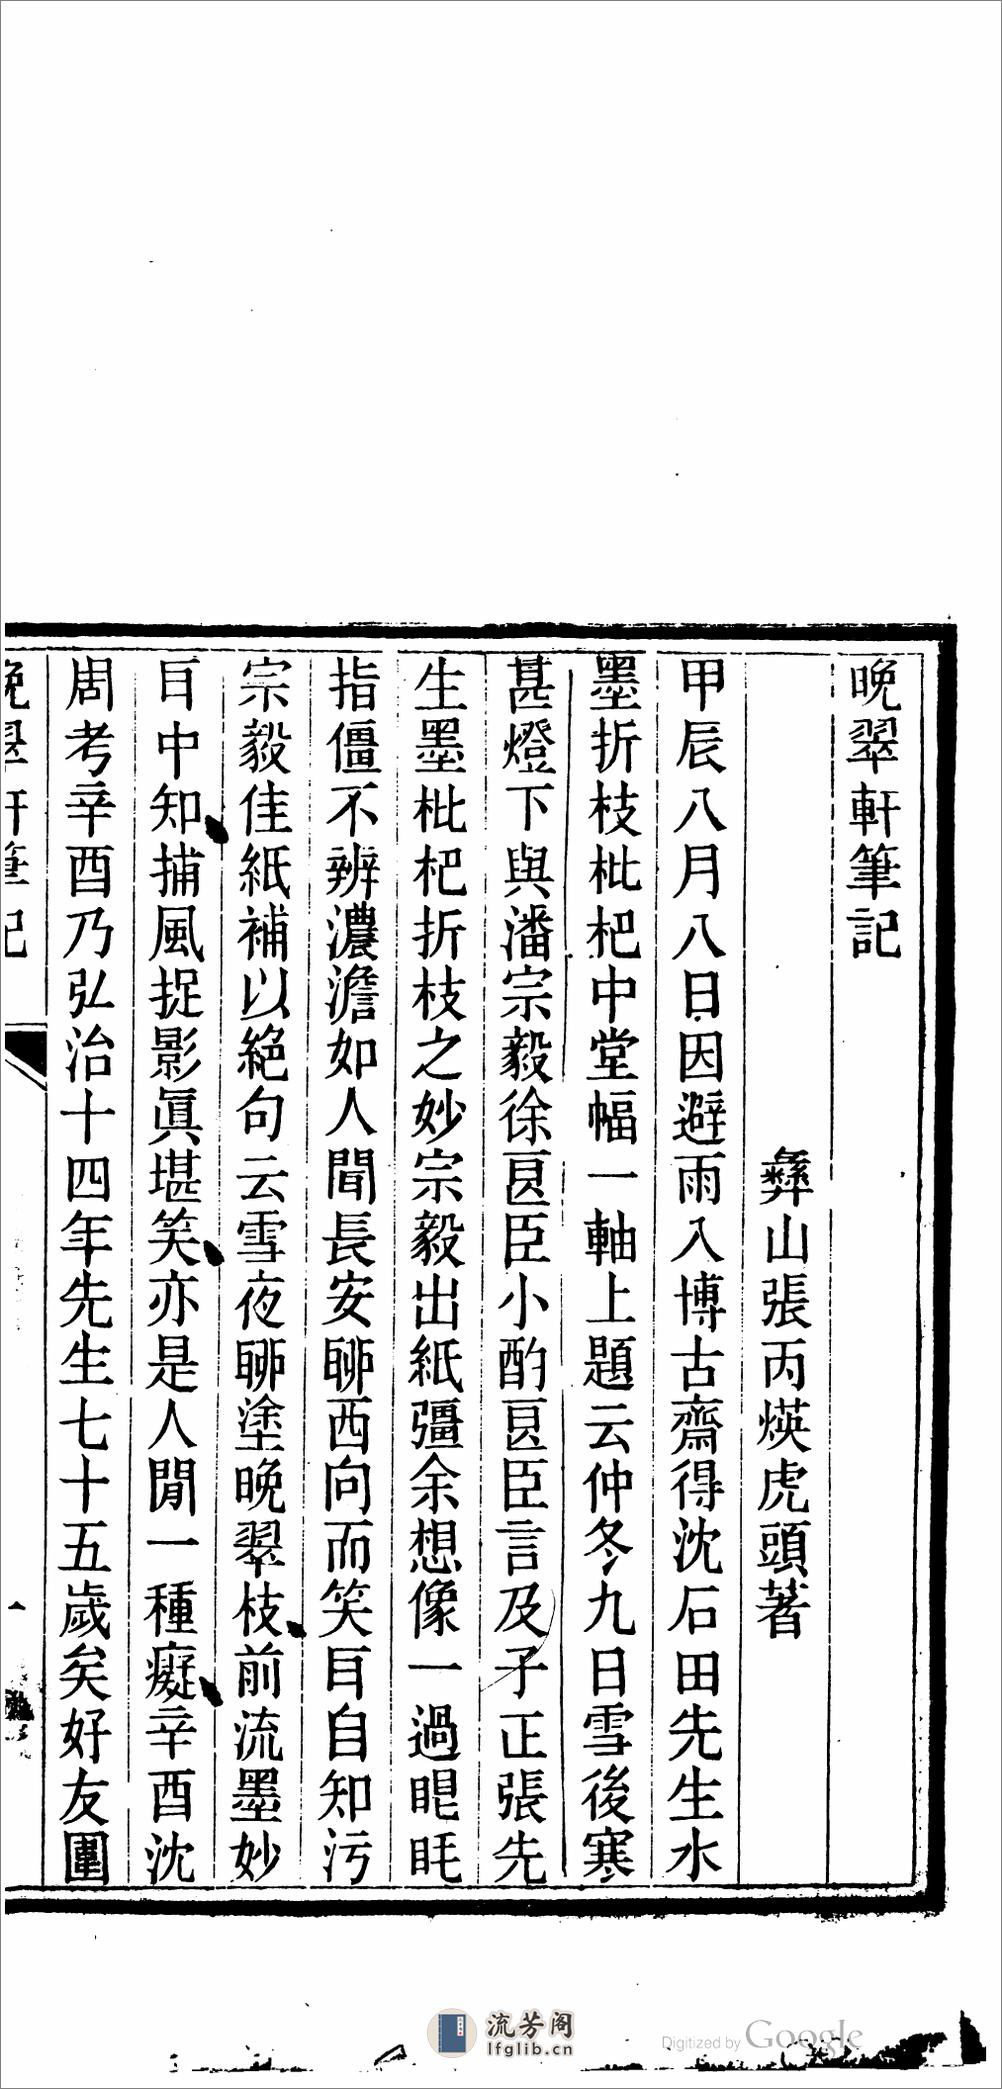 晚翠軒筆記
彝山張丙煐虎頭著
甲辰八月八日因避雨入博古齋得沈石田先生水
墨折枝枇杷中堂幅一軸上題云仲冬九日雪後寒
甚燈下與潘宗毅徐㫐臣小酌㫐臣言及子正張先
生墨枇杷折枝之妙宗毅出紙彊余想像一過眼眊
指僵不辨濃澹如人聞長安聊西向而笑耳自知污
宗毅佳紙補以絕句云雪夜聊塗晚翠枝前流墨妙
目中知捕風捉影眞堪笑亦是人閒一種癡辛酉沈
周考辛酉乃弘治十四年先生七十五歲矣好友圍
晚翠軒筆記
一
流芳阁
lfglib.cn
Digitized by Google